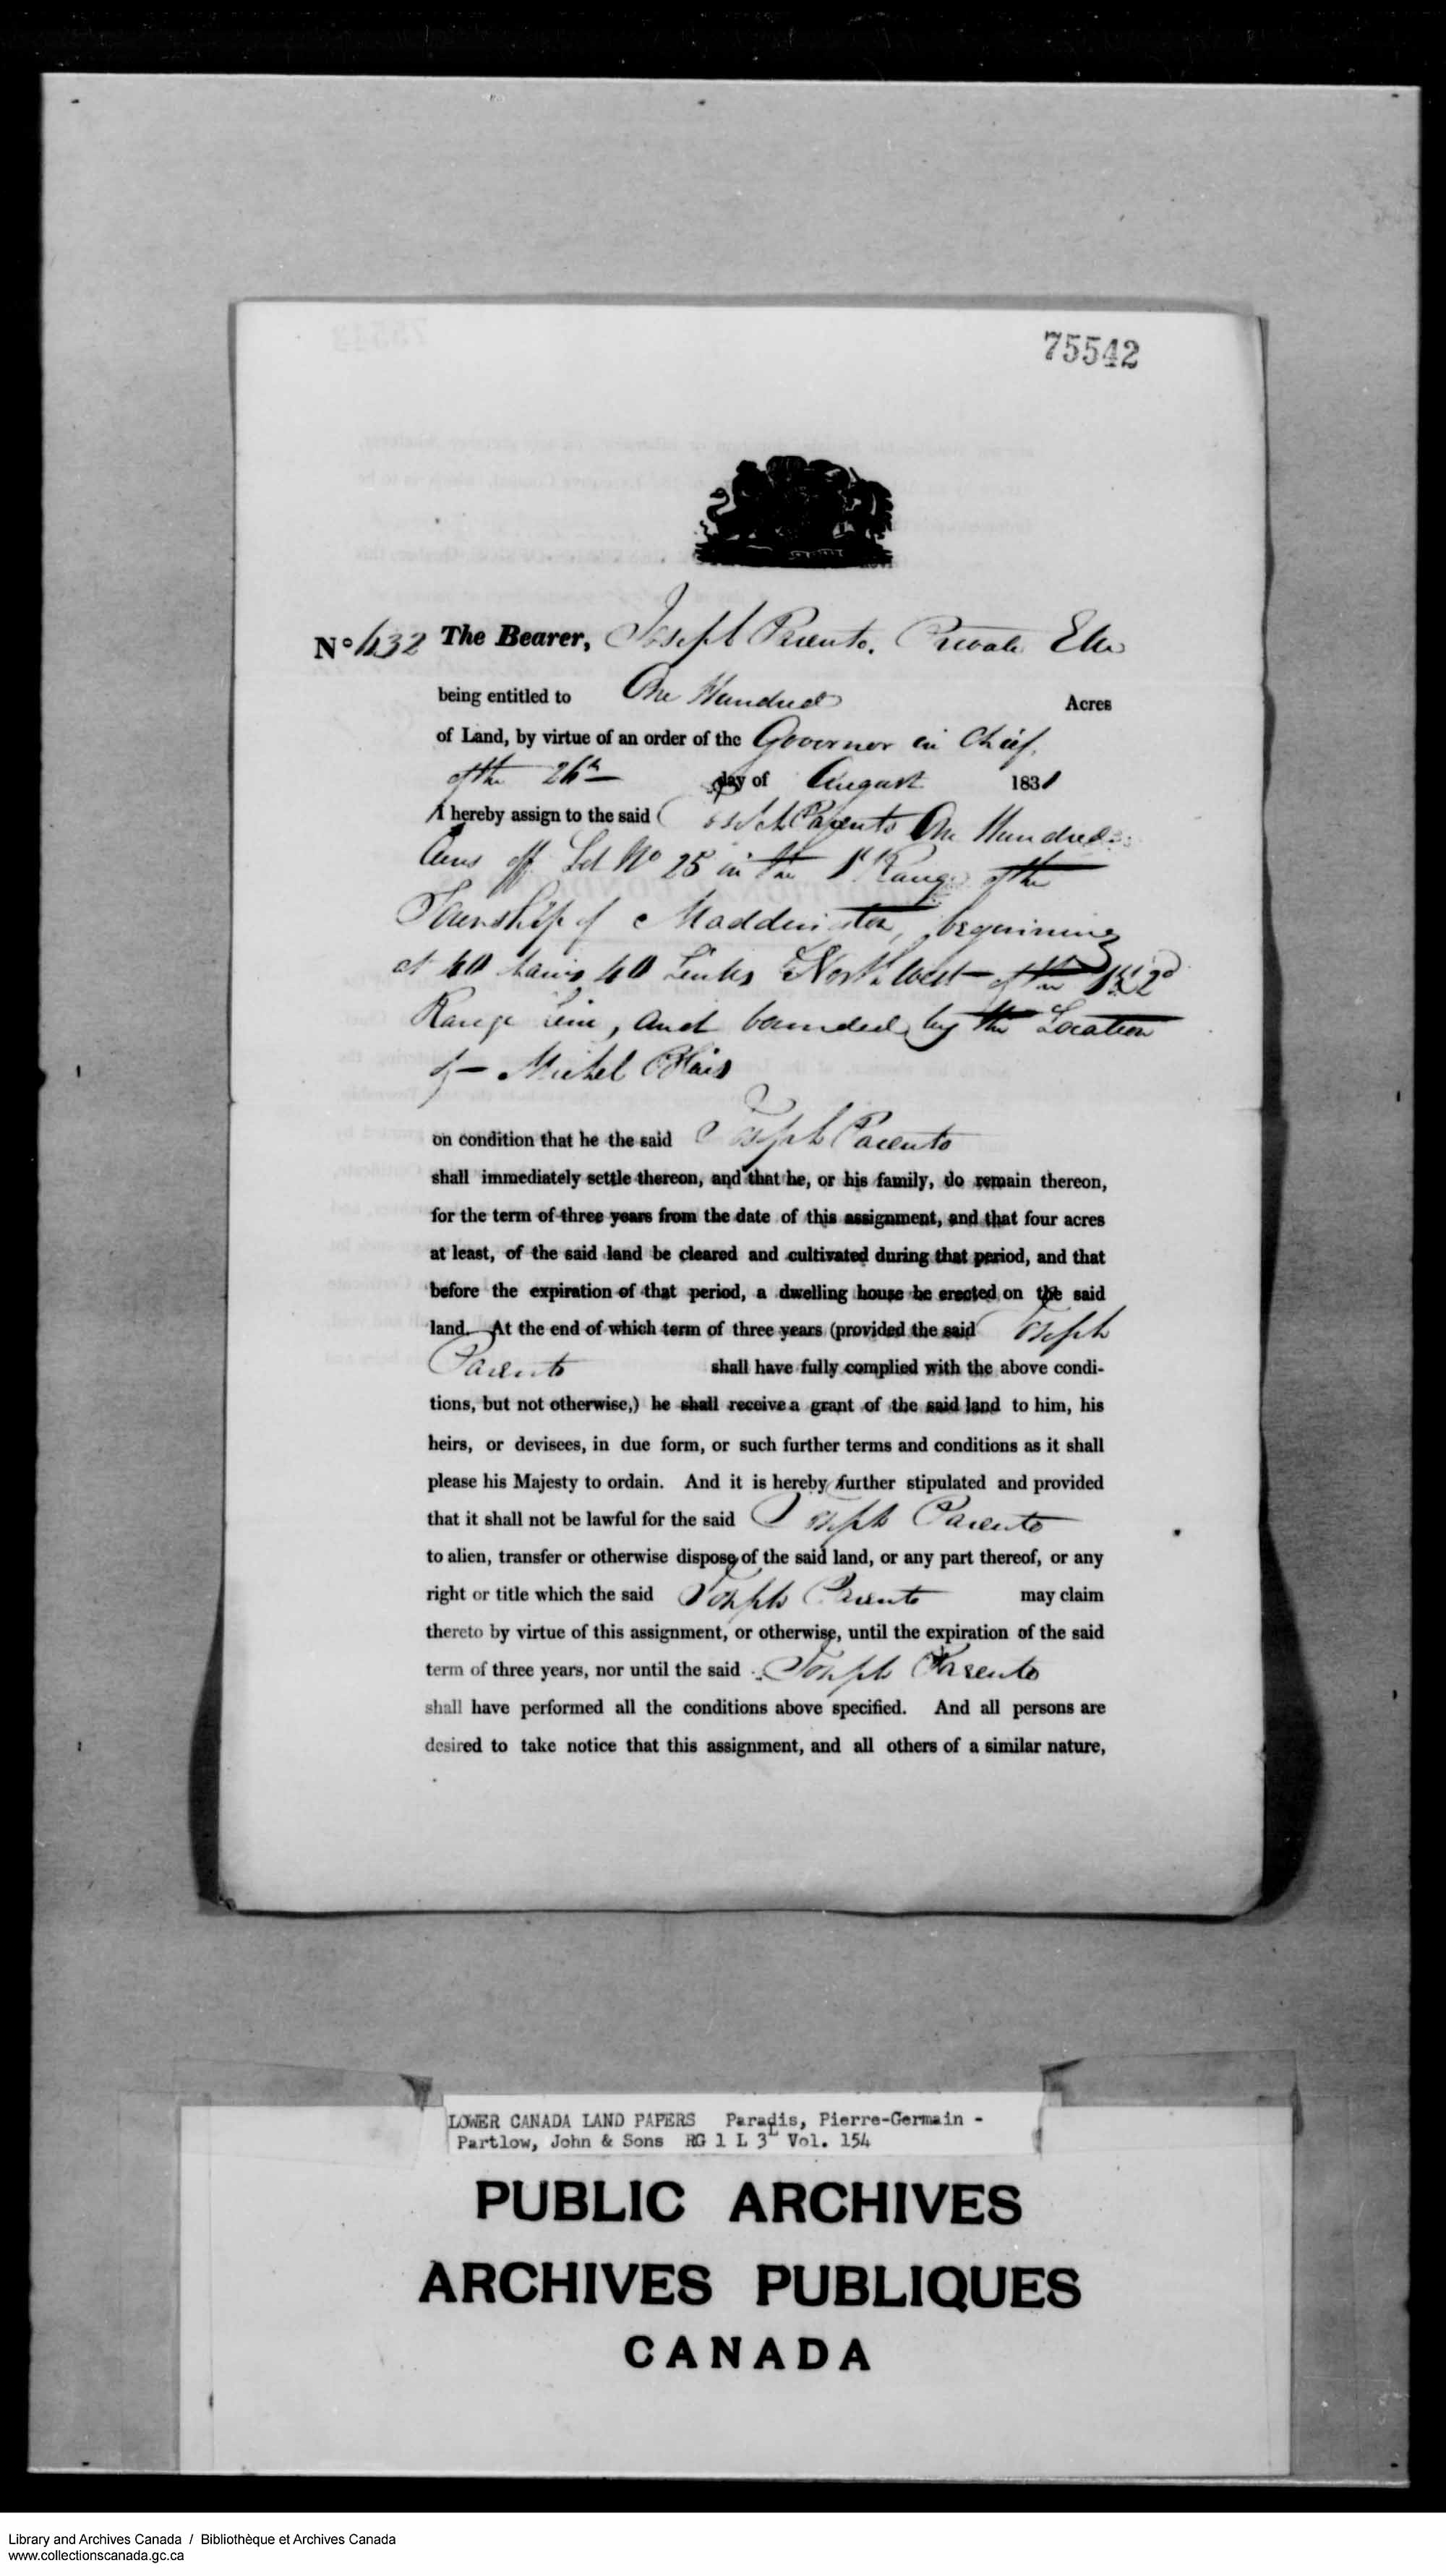 75542
No 432 The Bearer, Joseph Parento. Private E
being entitled to One Hundred Acres
of Land, by virtue of an order of the Governor in Chief,
of the 26th day of August 1831
I hereby assign to the said Joseph Parento One Hundred
Acres off Lot No 25 in the 1st Range of the
Township of Maddington, beginning
at 40 Chains 40 Links North West of the 1st & 2d
Range line, and bounded by the Location
of Michel Blais
on condition that he the said Joseph Parento
shall immediately settle thereon, and that he, or his family, do remain thereon,
for the term of three years from the date of this assignment, and that four acres
at least, of the said land be cleared and cultivated during that period, and that
before the expiration of that period, a dwelling house be erected on the said
land. At the end of which term of three years (provided the said Joseph
Parento shall have fully complied with the above condi-
tions, but not otherwise,) he shall receive a grant of the said land to him, his
heirs, or devisees, in due form, or such further terms and conditions as it shall
please his Majesty to ordain. And it is hereby further stipulated and provided
that it shall not be lawful for the said Joseph Parento
to alien, transfer or otherwise dispose of the said land, or any part thereof, or any
right or title which the said Joseph Parento may claim
thereto by virtue of this assignment, or otherwise, until the expiration of the said
term of three years, nor until the said Joseph Parento
shall have performed all the conditions above specified. And all persons are
desired to take notice that this assignment, and all others of a similar nature,
LOWER CANADA LAND PAPERS Paradis, Pierre-Germain -
Partlow, John & Sons RG 1 L 3L Vol. 154
PUBLIC ARCHIVES
ARCHIVES PUBLIQUES
CANADA
Library and Archives Canada / Bibliothèque et Archives Canada
www.collectionscanada.gc.ca